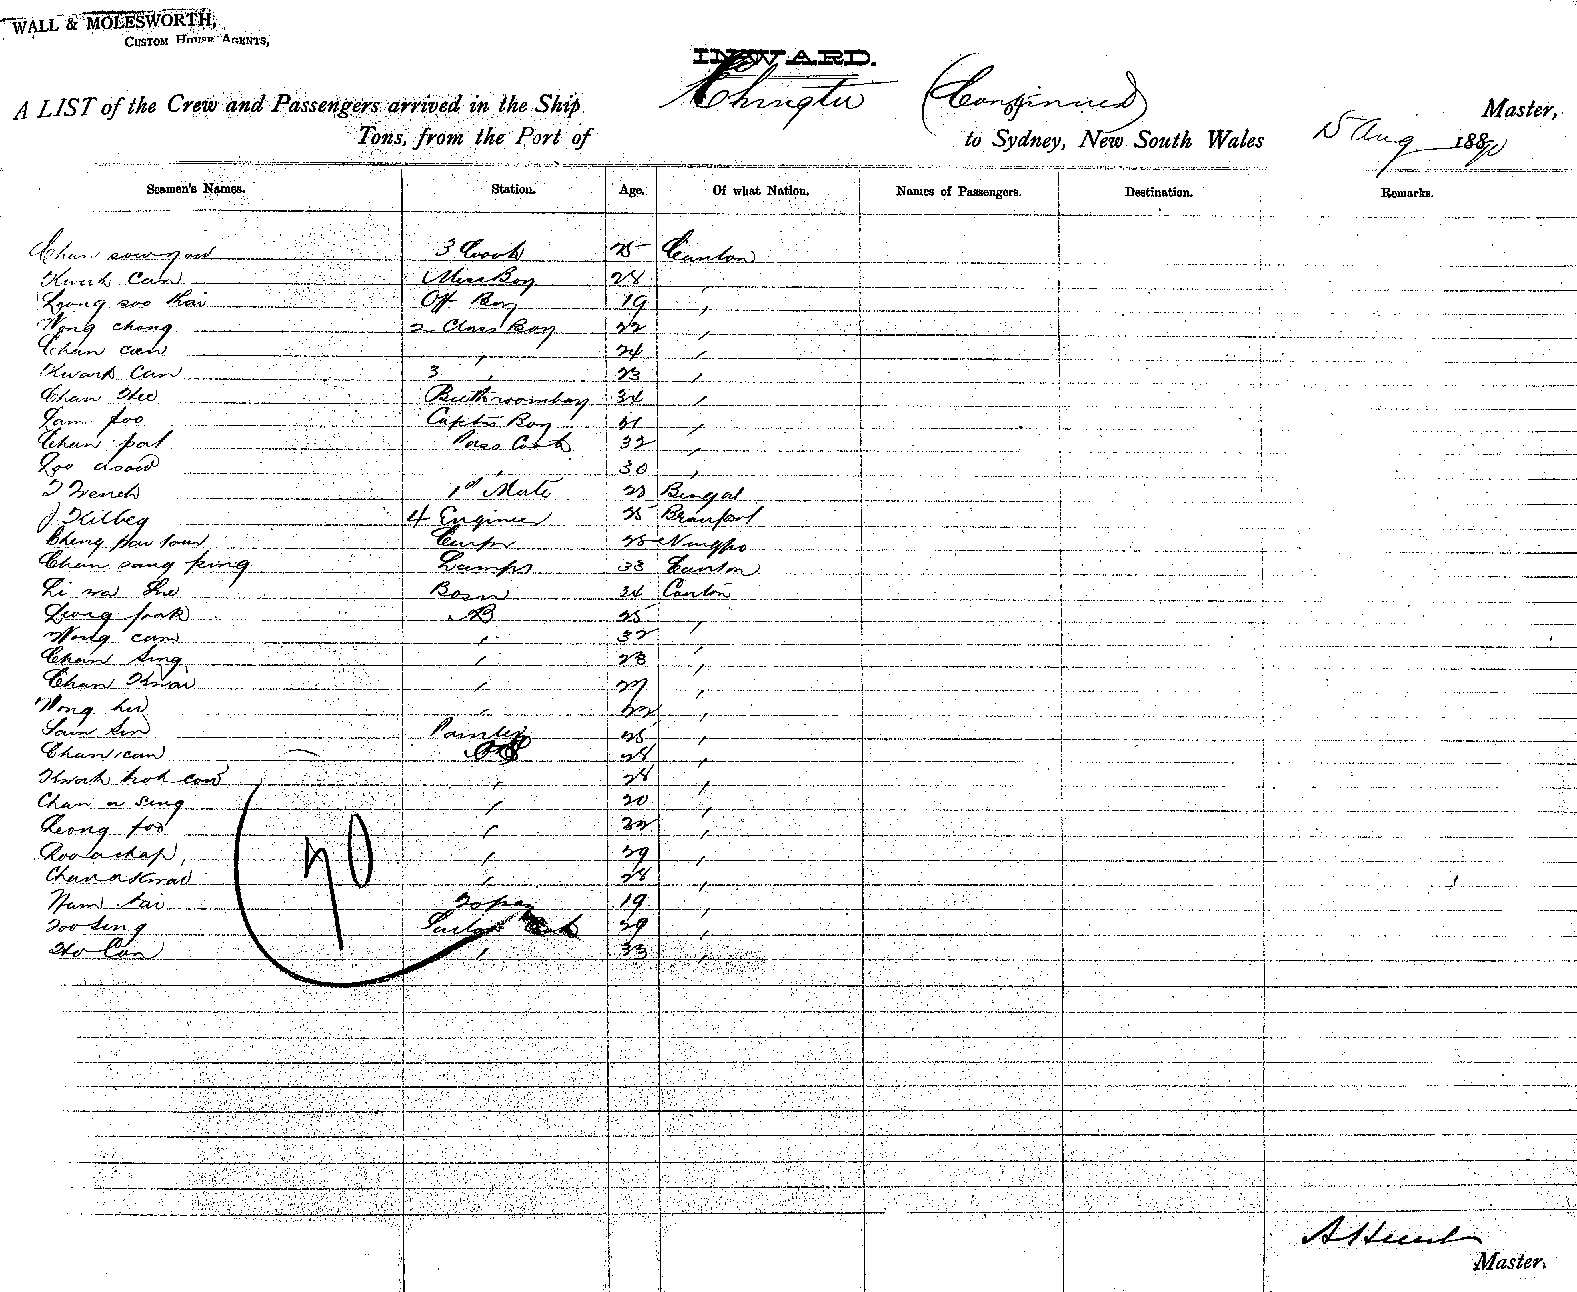 WALL & MOLESWORTH,
CUSTOM HOUSE AGENTS,
INWARD.
A LIST of the Crew and Passengers arrived in the Ship Chingtu (Continued) Master,
Tons, from the Port of to Sydney, New South Wales 15 Aug 1890
Seamen's Names. Station. Age. Of what Nation. Names of Passengers. Destination. Remarks.
Chan sow yow 3 Cook 25 Canton
Kwok Can Mess Boy 24
Leong soo Kai Off Boy 19 "
Wong chong 2 Class Boy 22 "
Chan can " 24 "
Kwok Can 3 " 23 "
Chan Hee Bathroomboy 34 "
Lam foo Capts Boy 21 "
Chan pat Pass Cook 32 "
Loo " 30 "
French 1st Mate 23 Bengal
J Kilbeg 4 Engineer 25
Cheng Carpr 25 Ningpo
Chan sang king Lamps 33 Canton
Li wa She Bosn 34 Canton
Leong pak AB 25 "
Wong cam " 32 "
Chan Sing " 23 "
Chan Kwai " 27 "
Wong hu " 22 "
Sam Sin Painter 25 "
Chan can 24 "
Kwok kok cow " 24 "
Chan a sing " 20 "
Leong foo " 32 "
Loo a chap " 29 "
Chan a Kwai " 28 "
Ham Kai Topaz 19 "
Foo Sing 29 "
Ho Can " 33 "
70
A Hunt
Master.